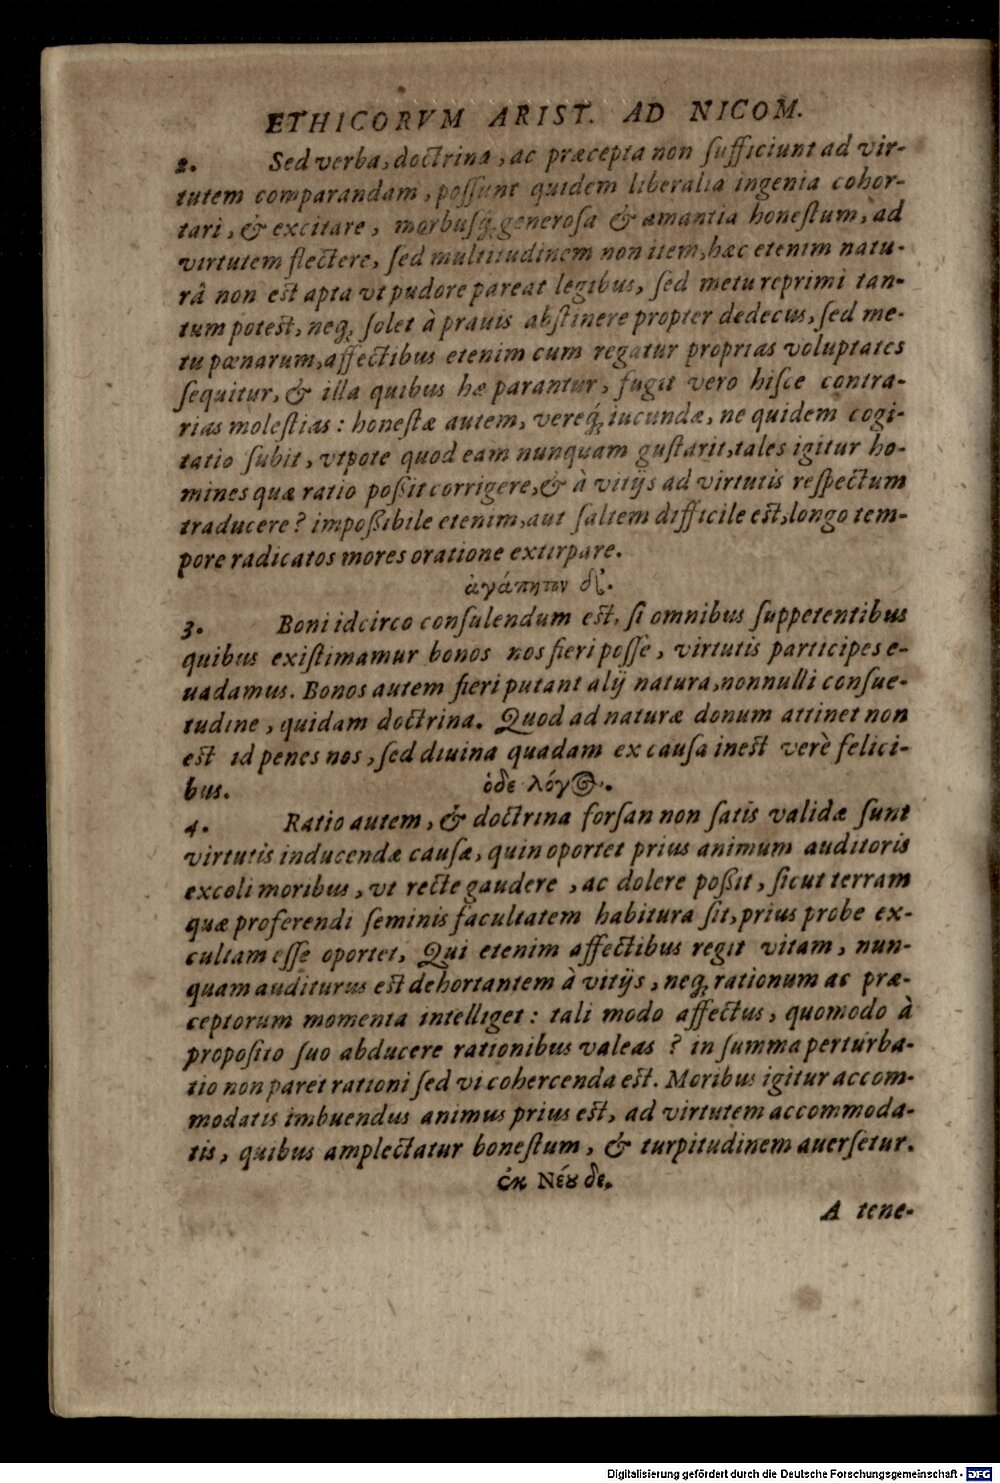 ETHICORVM ARIST. AD NICOM.
2. Sed verba, doctrina, ac præcepta non ſufficiunt ad vir-
tutem comparandam, poſſunt quidem liberalia ingenia cohor-
tari, & excitare, morbuſq́; generoſa & amantia honeſtum, ad
virtutem flectere, ſed multitudinem non item, hæc etenim natu-
râ non est apta vt pudore pareat legibus, ſed metu reprimi tan-
tum potest, neq; ſolet à prauis abſtinere propter dedecus, ſed me-
tu pœnarum, affectibus etenim cum regatur proprias voluptates
ſequitur, & illa quibus hæ parantur, fugit vero hiſce contra-
rias moleſtias: honeſtæ autem, vereq́; iucundæ, ne quidem cogi-
tatio ſubit, vtpote quod eam nunquam guſtarit, tales igitur ho-
mines quæ ratio poßit corrigere, & à vitijs ad virtutis reſpectum
traducere? impoßibile etenim, aut ſaltem difficile est, longo tem-
pore radicatos mores oratione extirpare.
ἀγάπητον δ.
3. Boni idcirco conſulendum est, ſi omnibus ſuppetentibus
quibus exiſtimamur bonos nos fieri poſſe, virtutis participes e-
uadamus. Bonos autem fieri putant alij natura, nonnulli conſue-
tudine, quidam doctrina. Quod ad naturæ donum attinet non
est id penes nos, ſed diuina quadam ex cauſa inest verè felici-
bus. ὁδε λόγος.
4. Ratio autem, & doctrina forſan non ſatis validæ ſunt
virtutis inducendæ cauſæ, quin oportet prius animum auditoris
excoli moribus, vt recte gaudere, ac dolere poßit, ſicut terram
quæ proferendi ſeminis facultatem habitura ſit, prius probe ex-
cultam eſſe oportet, Qui etenim affectibus regit vitam, nun-
quam auditurus est dehortantem à vitijs, neq; rationum ac præ-
ceptorum momenta intelliget: tali modo affectus, quomodo à
propoſito ſuo abducere rationibus valeas? in ſumma perturba-
tio non paret rationi ſed vi cohercenda est. Moribus igitur accom-
modatis imbuendus animus prius est, ad virtutem accommoda-
tis, quibus amplectatur boneſtum, & turpitudinem auerſetur.
ἐκ Νέȣ δε.
A tene-
Digitalisierung gefördert durch die Deutsche Forschungsgemeinschaft - DFG